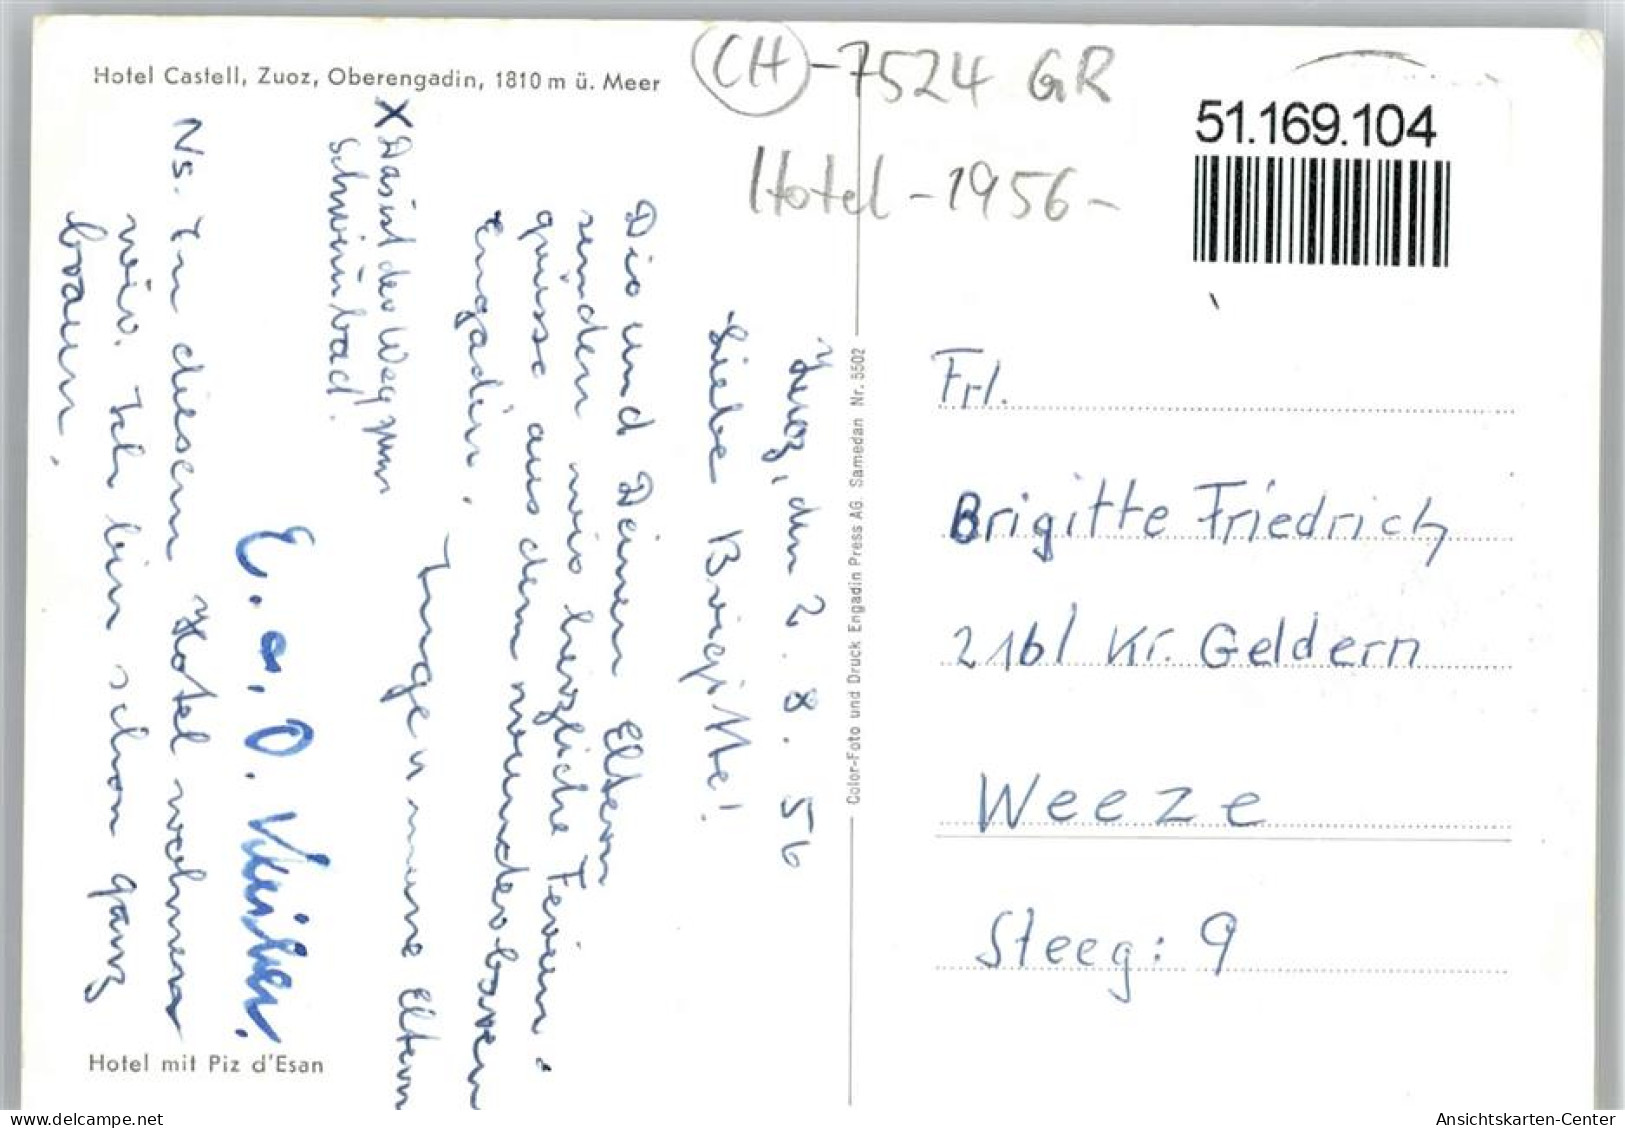 Hotel Castell, Zuoz, Oberengadin, 1810 m ü. Meer
CH-7524 GR
Hotel -1956-
51.169.104
Zuoz, den 2. 8. 56
Liebe Brigitte!
Dir und Deinen Eltern
senden wir herzliche Ferien-
grüsse aus dem wunderbaren
Engadin.
Inge u. meine Eltern
X Das ist der Weg zum
Schwimmbad.
E. a. O.
Ns. In diesem Hotel wohnen
wir. Ich bin schon ganz
braun.
Hotel mit Piz d'Esan
Color-Foto und Druck Engadin Press AG. Samedan Nr. 5502
Frl.
Brigitte Friedrich
21b/ Kr. Geldern
Weeze
Steeg: 9
www.delcampe.net
Ansichtskarten-Center